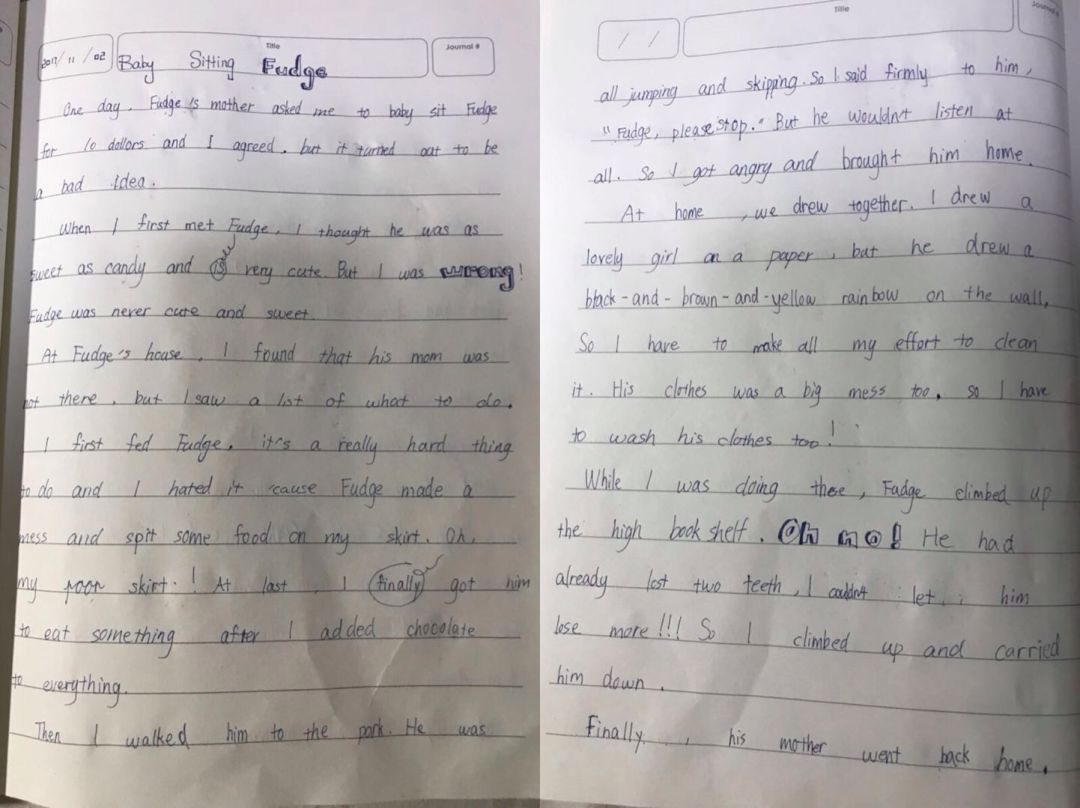 2017/11/02
Title
Baby Sitting Fudge
Journal #
One day, Fudge's mother asked me to baby sit Fudge
for 10 dollors and I agreed, but it turned out to be
a bad idea.
When I first met Fudge, I thought he was as
sweet as candy and is very cute. But I was wrong!
Fudge was never cute and sweet.
At Fudge's house, I found that his mom was
not there, but I saw a list of what to do.
I first fed Fudge, it's a really hard thing
to do and I hated it 'cause Fudge made a
mess and spit some food on my skirt. Oh,
my poor skirt! At last, I finally got him
to eat something after I added chocolate
to everything.
Then I walked him to the park. He was
/ /
Title
Journal #
all jumping and skipping. So I said firmly to him,
"Fudge, please stop." But he wouldn't listen at
all. So I got angry and brought him home.
At home, we drew together. I drew a
lovely girl on a paper, but he drew a
black-and-brown-and-yellow rainbow on the wall,
So I have to make all my effort to clean
it. His clothes was a big mess too, so I have
to wash his clothes too!
While I was doing these, Fudge climbed up
the high book shelf. Oh no! He had
already lost two teeth, I couldn't let him
lose more!!! So I climbed up and carried
him down.
Finally, his mother went back home.